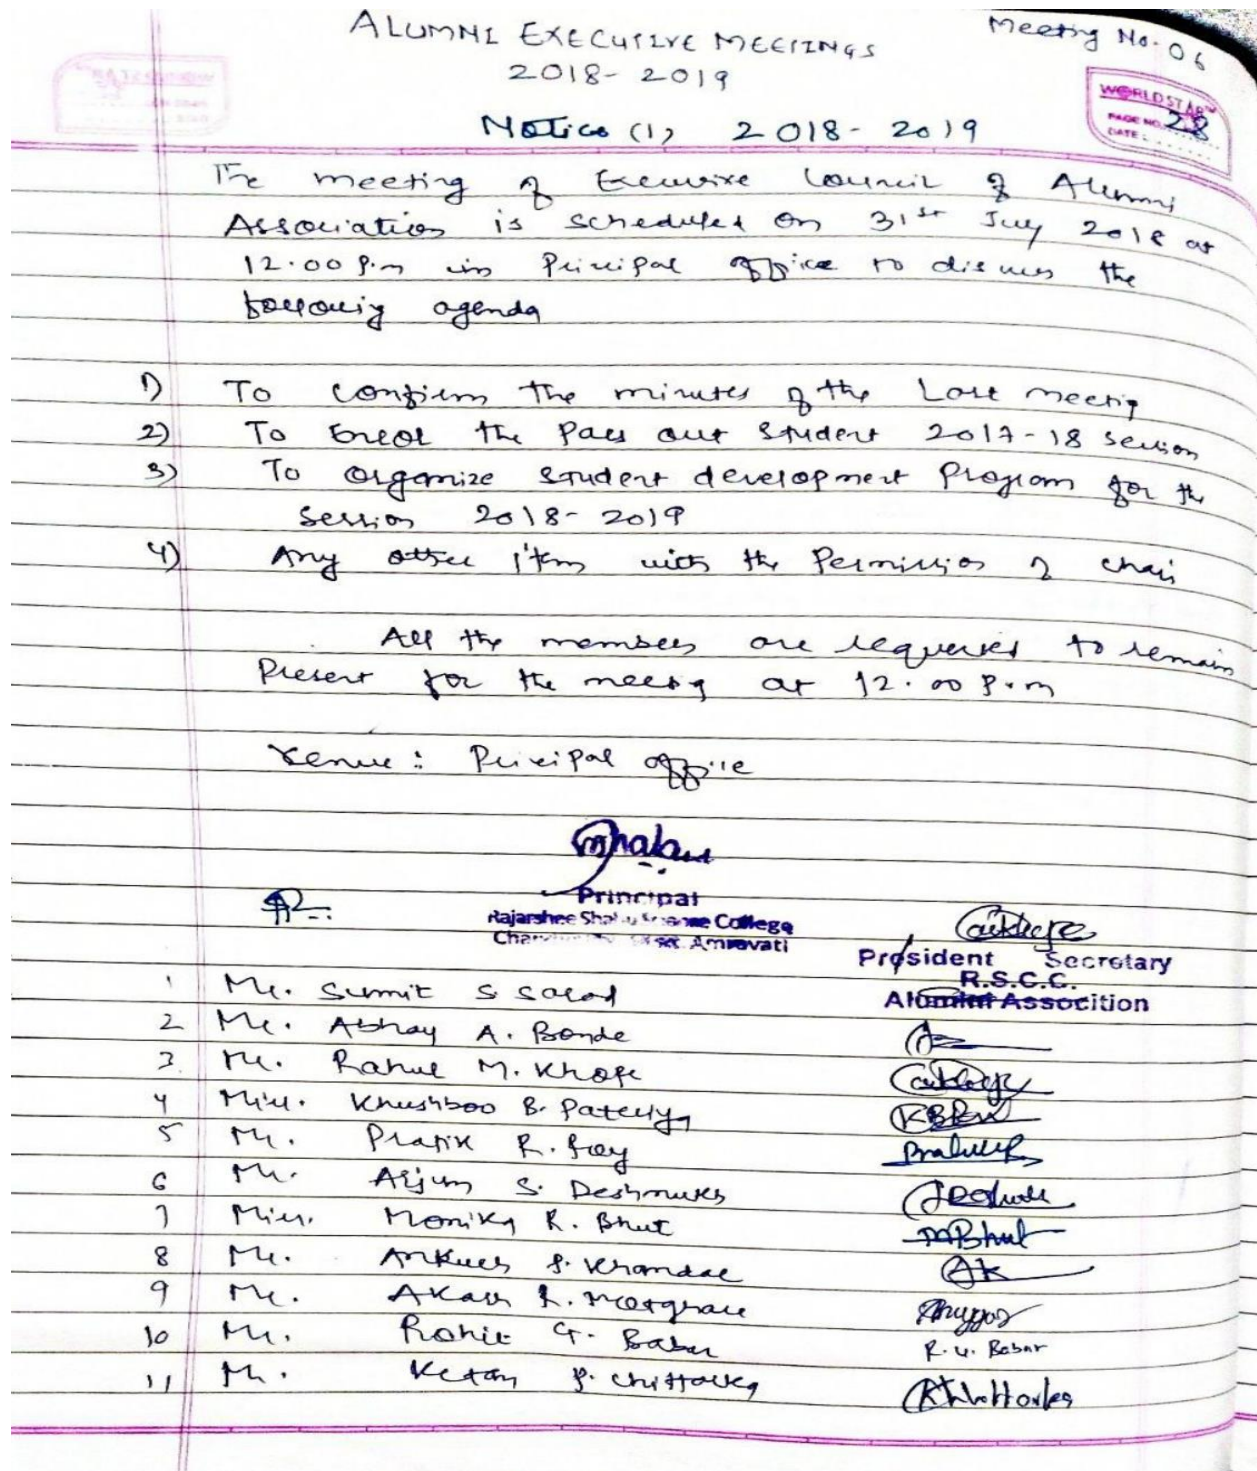 ALUMNI EXECUTIVE MEETINGS
Meeting No. 06
2018-2019
WORLDSTAR
PAGE NO. 28
DATE :
Notice (1) 2018-2019
The meeting of Executive Council of Alumni
Association is scheduled on 31st July 2018 at
12.00 P.m in Principal office to discuss the
following agenda
1) To confirm the minutes of the Last meeting
2) To Enrol the Pass out Student 2017-18 session
3) To organize student development Program for the
session 2018-2019
4) Any other item with the Permission of chair
All the members are requested to remain
Present for the meeting at 12.00 P.m
Venue : Principal office
Principal
Rajarshee Shahu Science College
Amravati
President Secretary
R.S.C.C.
Alumini Assocition
1 Mr. Sumit S
2 Mr. Abhay A. Bonde
3. Mr. Rahul M. Khope
4 Miss. Khushboo B. Pateriya
5 Mr. Pratik R.
6 Mr. Arjun S. Deshmukh
7 Miss. Monika R. Bhut
MBhut
8 Mr. Ankush P. Khandae
AK
9 Mr. Akash R.
10 Mr. Rohit G. Babar
R. G. Babar
11 Mr. Ketan P. Chittarka